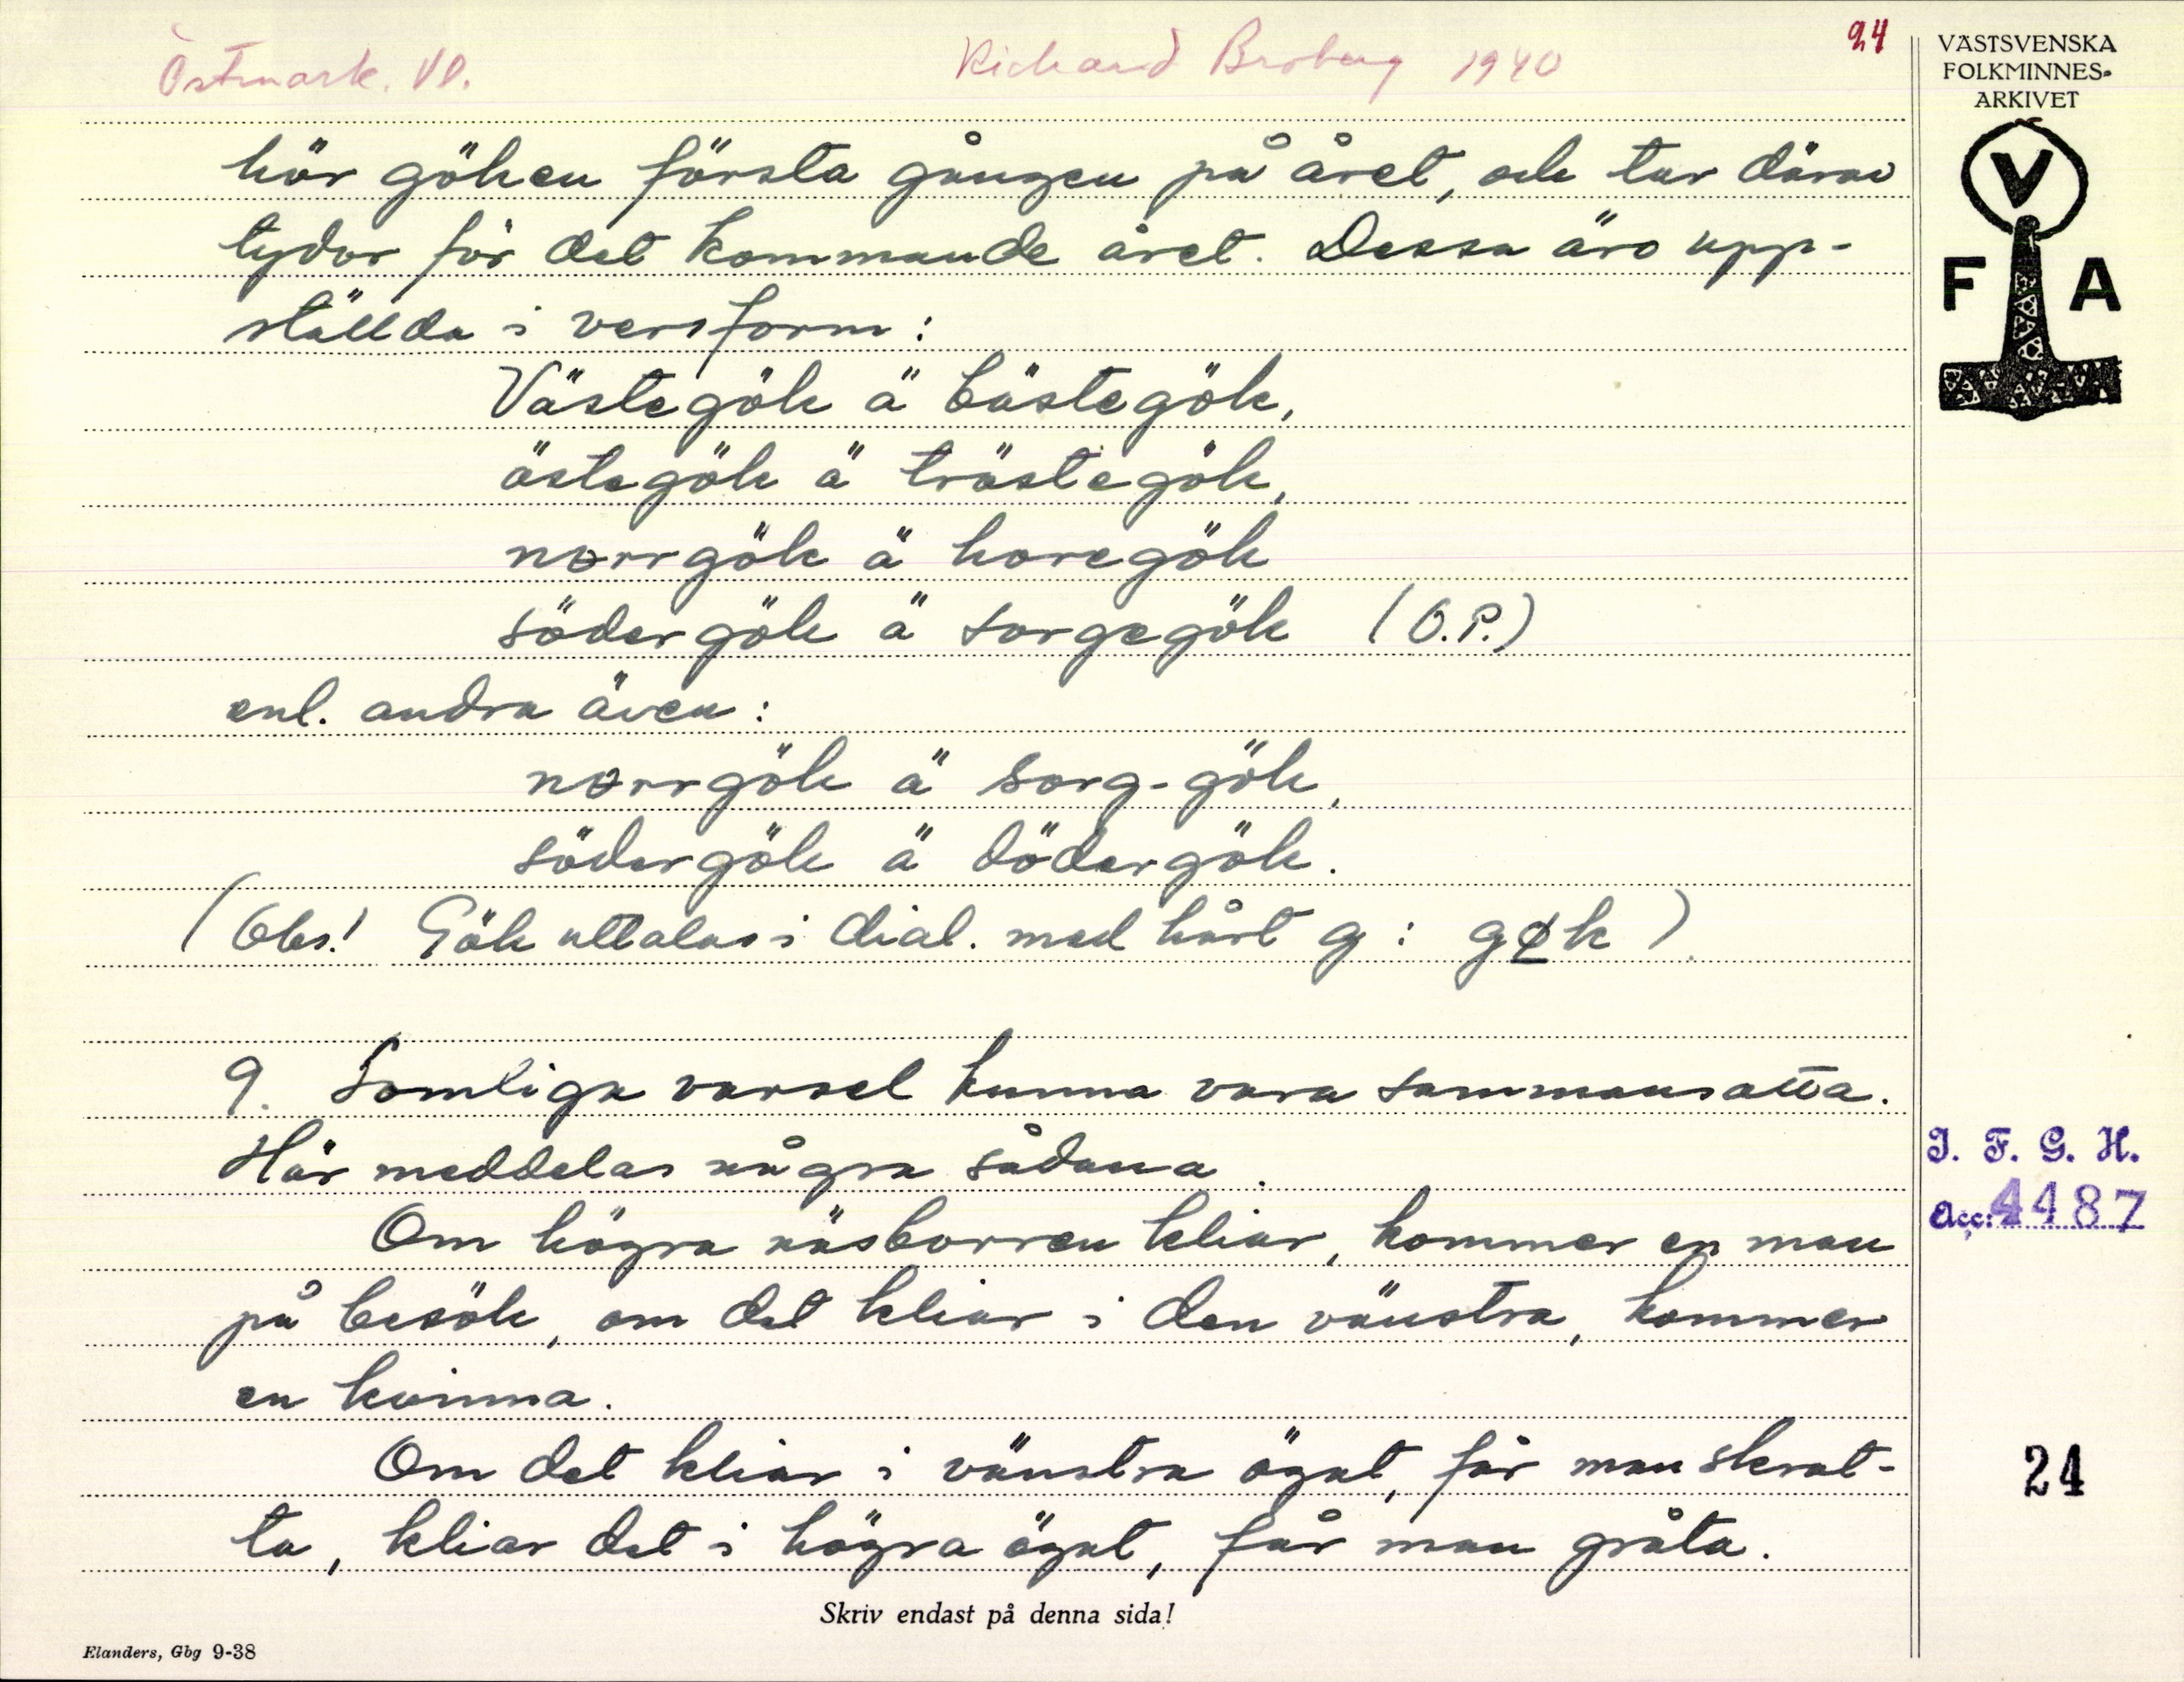 Östmark. Vl.
Richard Broberg 1940
24
VÄSTSVENSKA
FOLKMINNES-
ARKIVET
V
F A
hör göken första gången på året, och tar därav
tydor för det kommande året. Dessa äro upp-
ställda i versform:
Västegök ä bästegök,
östegök ä tröstegök,
norrgök ä horegök
södergök ä sorgegök (O.P.)
enl. andra även:
norrgök ä sorg-gök,
södergök ä dödergök.
(Obs! Gök uttalas i dial. med hårt g: gøk)
9. Somliga varsel kunna vara sammansatta.
Här meddelas några sådana.
Om högra näsborren kliar, kommer en man
på besök, om det kliar i den vänstra, kommer
en kvinna.
Om det kliar i vänstra ögat, får man skrat-
ta, kliar det i högra ögat, får man gråta.
I. F. G. H.
Acc: 4487
24
Skriv endast på denna sida!
Elanders, Gbg 9-38